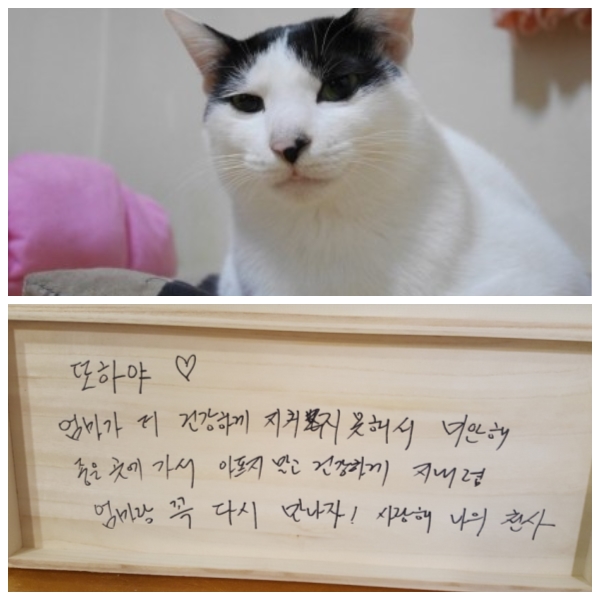 또하야 ♡
엄마가 더 건강하게 지켜주지 못해서 미안해
좋은 곳에 가서 아프지 말고 건강하게 지내렴
엄마랑 꼭 다시 만나자! 사랑해 나의 천사